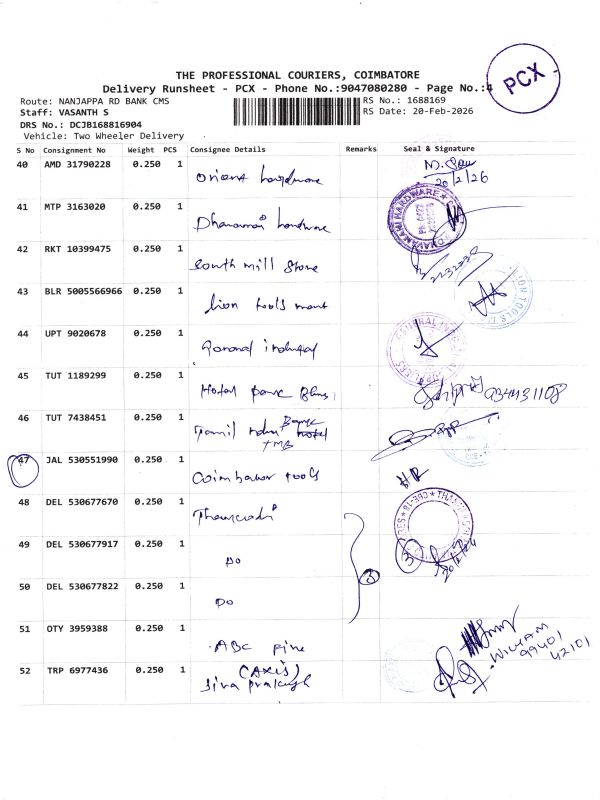 PCX
THE PROFESSIONAL COURIERS, COIMBATORE
Delivery Runsheet - PCX - Phone No.:9047080280 - Page No.:4
Route: NANJAPPA RD BANK CMS
RS No.: 1688169
Staff: VASANTH S
RS Date: 20-Feb-2026
DRS No.: DCJB168816904
Vehicle: Two Wheeler Delivery
S No Consignment No Weight PCS Consignee Details Remarks Seal & Signature
40 AMD 31790228 0.250 1 Orient hardware
20/2/26
41 MTP 3163020 0.250 1 hardware
42 RKT 10399475 0.250 1 South mill Store
2232230
43 BLR 5005566966 0.250 1 Lion tools mart
44 UPT 9020678 0.250 1 General
45 TUT 1189299 0.250 1 Hotel park
46 TUT 7438451 0.250 1 Tamil Bank
TMB
47 JAL 530551990 0.250 1 Coimbator tools
48 DEL 530677670 0.250 1
49 DEL 530677917 0.250 1 DO
3
50 DEL 530677822 0.250 1 DO
51 OTY 3959388 0.250 1 ABC
WILLIAM
99401
42101
52 TRP 6977436 0.250 1 (AXIS)
Siva prakash